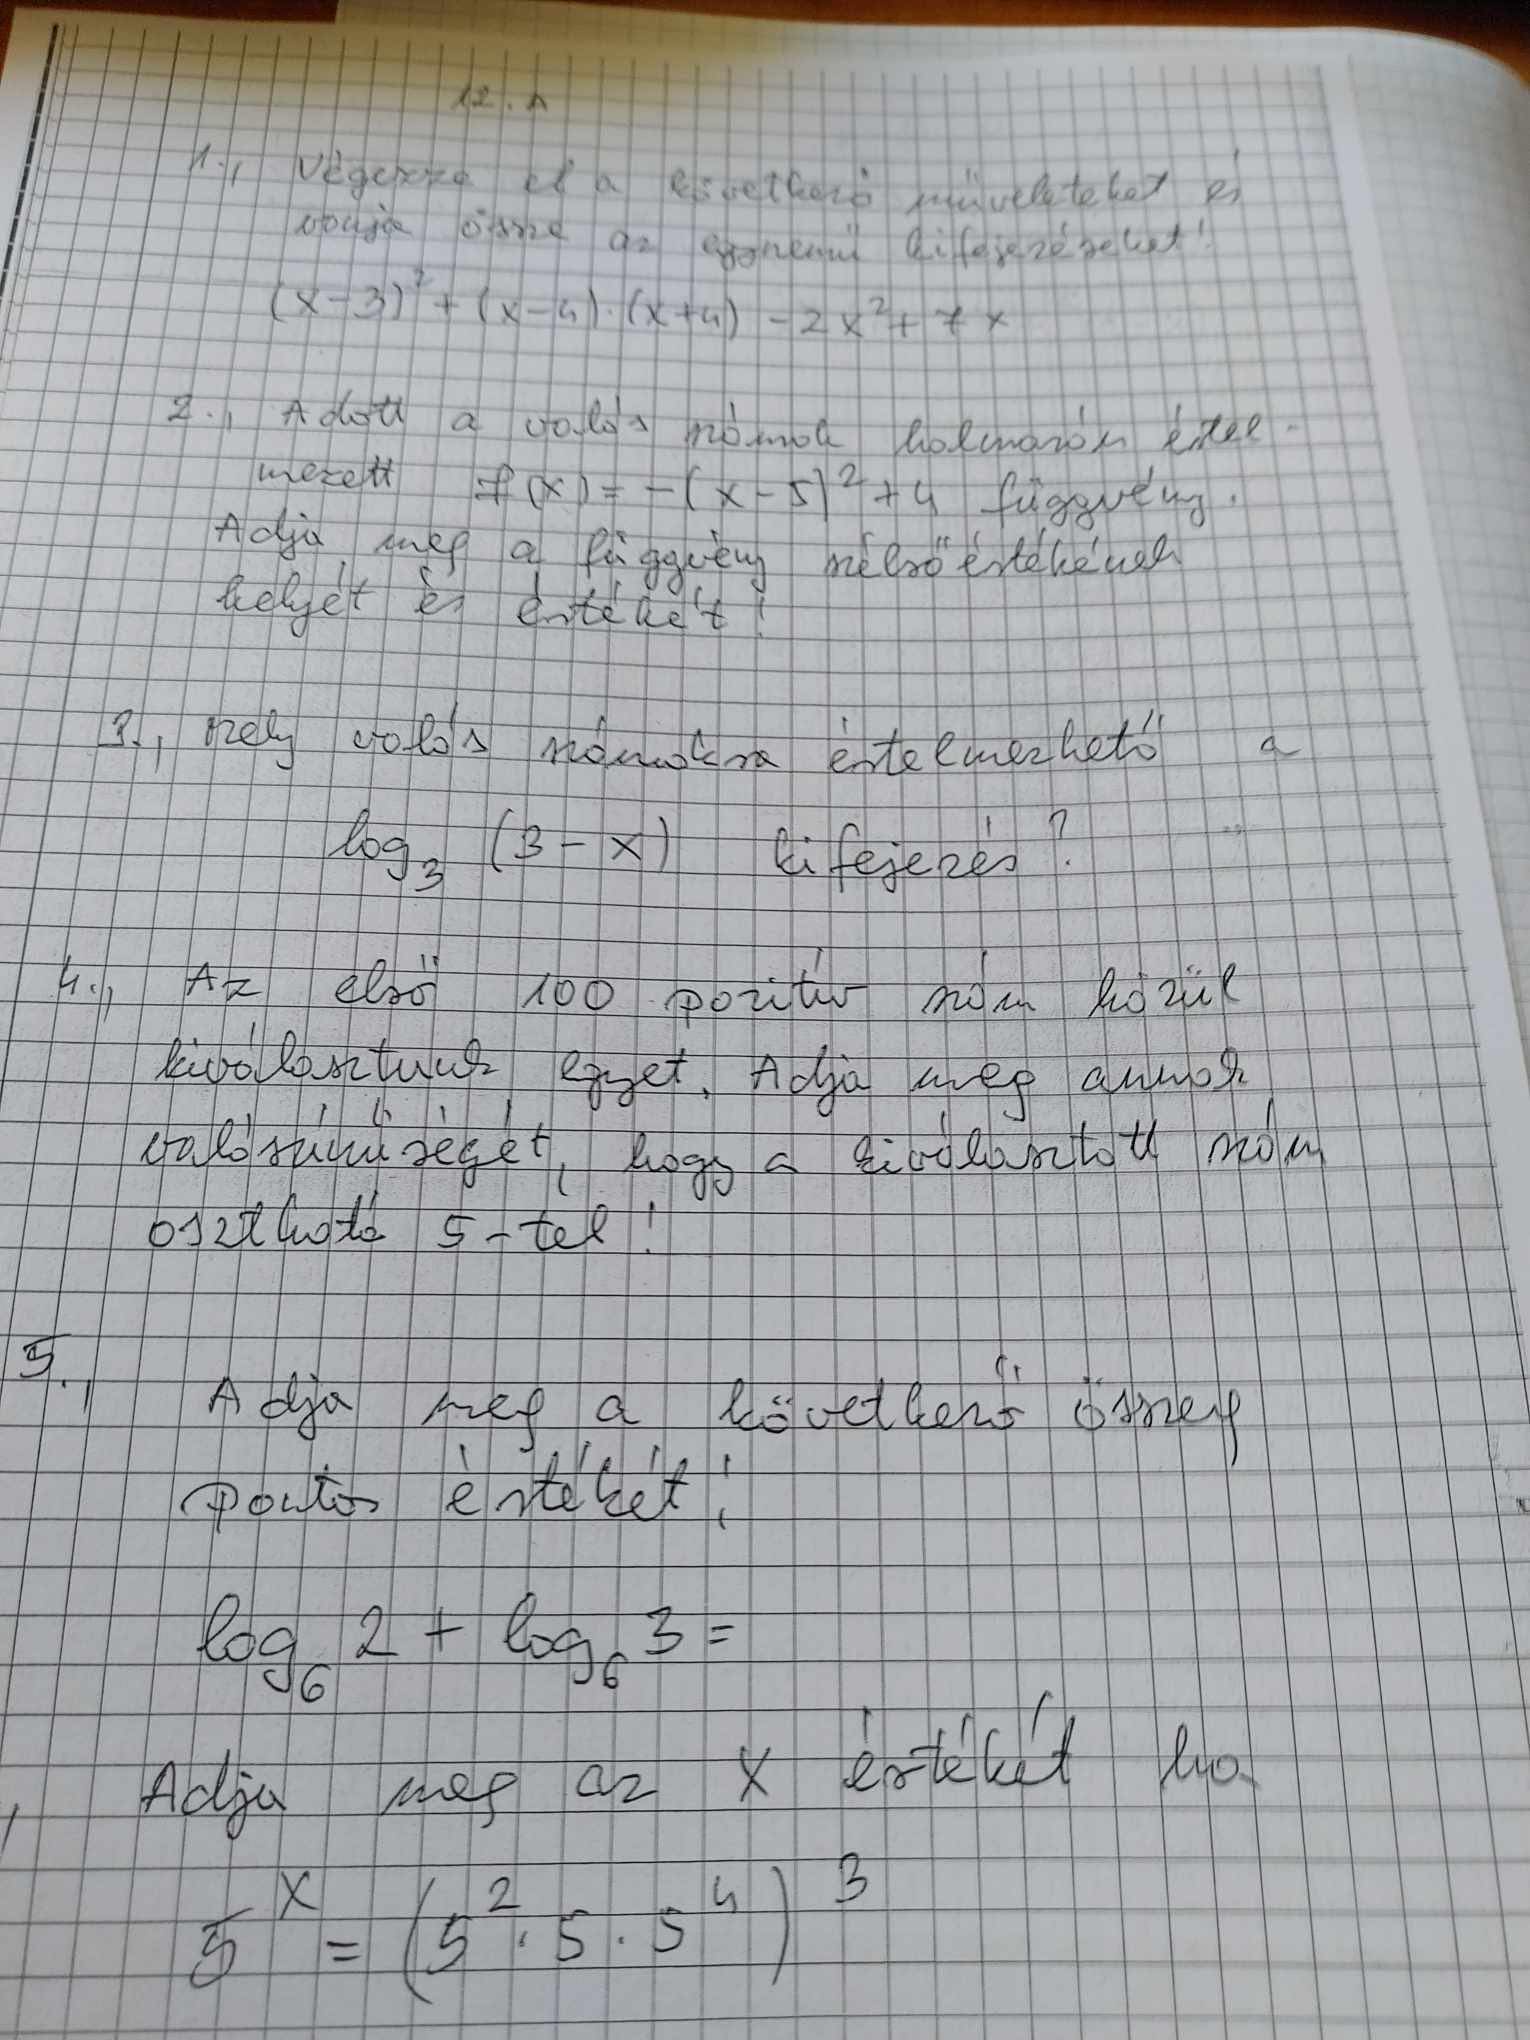 12. A
1., Végezze el a következő műveleteket és
vonja össze az egynemű kifejezéseket!
(x-3)² + (x-4)·(x+4) - 2x² + 7x
2., Adott a valós számok halmazán értel-
mezett f(x) = -(x-5)² + 4 függvény.
Adja meg a függvény szélsőértékének
helyét és értékét!
3., Mely valós számokra értelmezhető a
log₃ (3-x) kifejezés?
4., Az első 100 pozitív szám közül
kiválasztunk egyet. Adja meg annak
valószínűségét, hogy a kiválasztott szám
osztható 5-tel!
5., Adja meg a következő összeg
pontos értékét!
log₆ 2 + log₆ 3 =
, Adja meg az x értékét ha
5ˣ = (5² · 5 · 5⁴)³